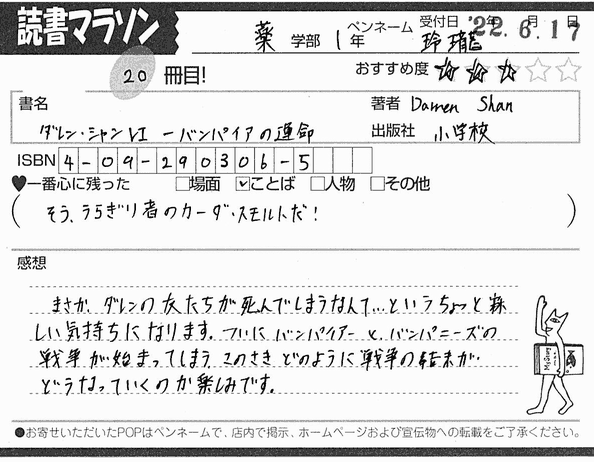 読書マラソン
薬 学部 1 年 ペンネーム 玲瓏 受付日 '22年6月17日
20 冊目! おすすめ度 ★★★☆☆
書名 著者 Darren Shan
ダレン・シャン VI ーバンパイアの運命 出版社 小学校
ISBN 4-09-290306-5
♥一番心に残った □場面 ☑ことば □人物 □その他
( そう、うらぎり者のカーダ・スモルトだ! )
感想
まさか、ダレンの友たちが死んでしまうなんて…というちょっと
しい気持ちになります。ついにバンパイアーと、バンパニーズの
戦争が始まってしまう このさき どのように戦争の結末が
どうなっていくのか楽しみです。
●お寄せいただいたPOPはペンネームで、店内で掲示、ホームページおよび宣伝物への転載をご了承ください。